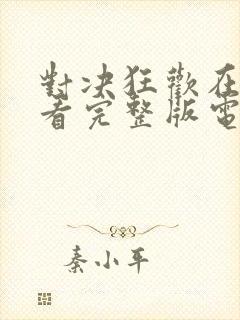 對决狂歡在
看完整版電
秦小平